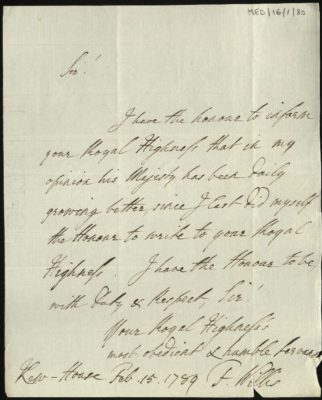 MED/16/1/80
Sir!
I have the honour to inform
your Royal Highness that in my
opinion his Majesty has been daily
growing better, since I last did myself
the Honour to write to your Royal
Highness. I have the Honour to be
with Duty & Respect, Sir!
Your Royal Highness's
most obedient & humble Servant
Kew-House Feb. 15. 1789 F. Willis